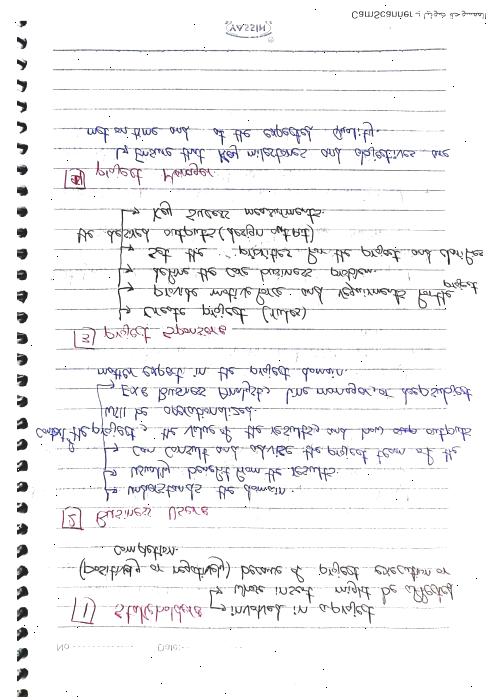 No Date:
[1] Stakeholders → involved in a project
→ whose insert might be affected
(positively or negatively) because of project execution or
completion.
[2] Business Users
→ understands the domain.
→ usually benefit from the results.
→ Can consult and advise the project team of the
Context of the project, the value of the results, and how outputs
will be operationalized.
→ Exe Business Analyst, line manager, or deep subject
matter expert in the project domain.
[3] Project Sponsors
→ Create project (rules)
→ provide motive force and requirments for the project
→ define the core business problem.
→ Set the priorities for the project and clarifies
the desired outputs (design output)
→ Key Sucess measurments.
[4] Project Manager
→ Ensure that key milestones and objectives are
met on time and of the expected quality.
YASSIN
الممسوحة ضوئيا بـ CamScanner